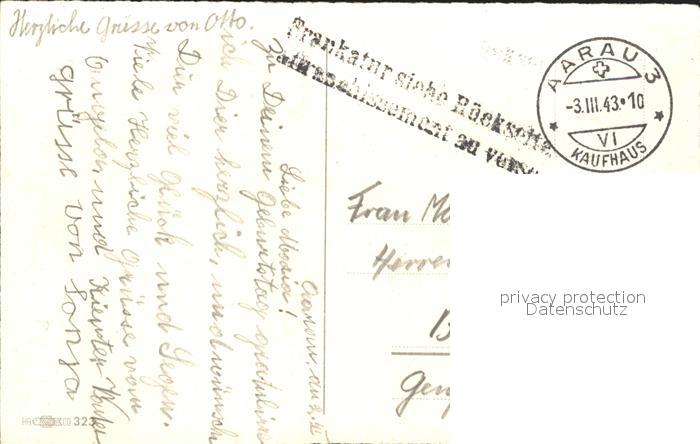 Herzliche Grüsse von Otto.
Frankatur siehe Rückseite
Affranchissement au verso
AARAU 3
-3.III.43.10
VI
KAUFHAUS
Aarau, den 2.
Liebe
Zu Deinem Geburtstag gratuliere
ich Dier herzlich, und wünsch
Dir viel Glück und Segen.
Viele Herzliche Grüsse von
und
grüsse von Sonja
Frau
Herren
privacy protection
Datenschutz
CO 323